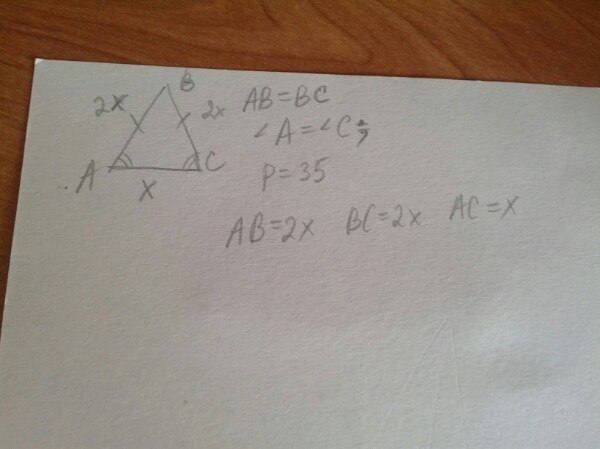 B
2x 2x AB=BC
∠A=∠C;
A C
x
P=35
AB=2x BC=2x AC=x